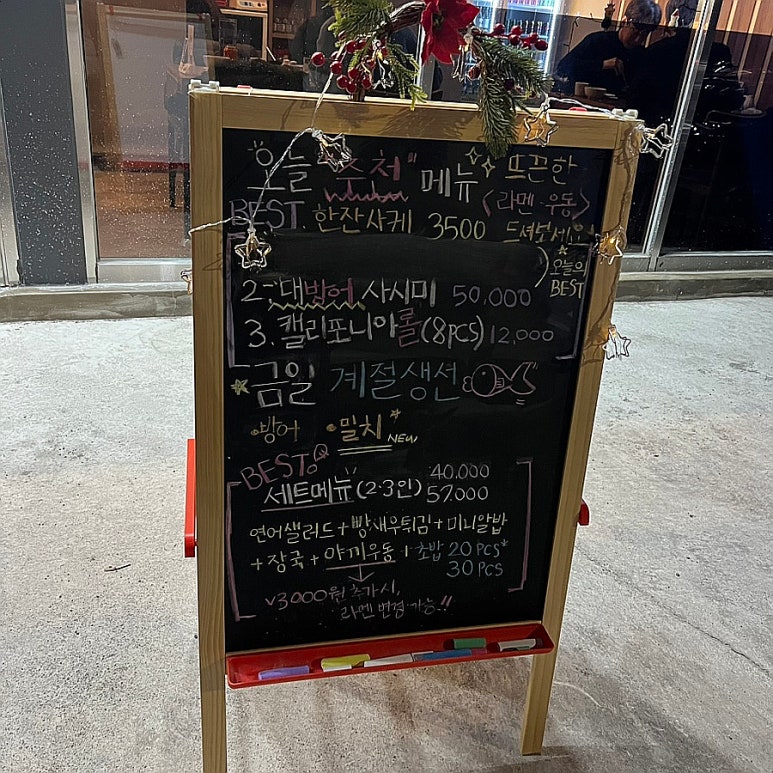 오늘 추천 메뉴
뜨끈한
<라멘·우동>
드셔보세요!
BEST. 한잔사케 3500
오늘의
BEST
2. 대방어 사시미 50,000
3. 캘리포니아롤(8PCS) 12,000
금일 계절생선
·방어 ·밀치 NEW
BEST
세트메뉴(2·3인) 40.000
57.000
연어샐러드+빵새우튀김+미니알밥
+장국+야끼우동+초밥 20PCS*
30PCS
v3000원 추가시,
라멘 변경 가능!!